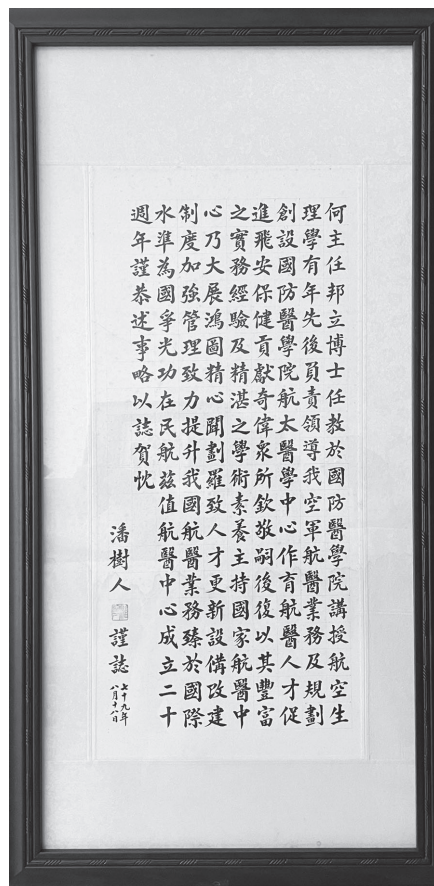 何主任邦立博士任教於國防醫學院講授航空生
理學有年先後負責領導我空軍航醫業務及規劃
創設國防醫學院航太醫學中心作育航醫人才促
進飛安保健貢獻奇偉衆所欽敬嗣後復以其豐富
之實務經驗及精湛之學術素養主持國家航醫中
心乃大展鴻圖精心闢劃羅致人才更新設備改建
制度加強管理致力提升我國航醫業務臻於國際
水準為國爭光功在民航茲值航醫中心成立二十
週年謹恭述事略以誌賀忱
潘樹人 謹誌
七十九年
八月十八日